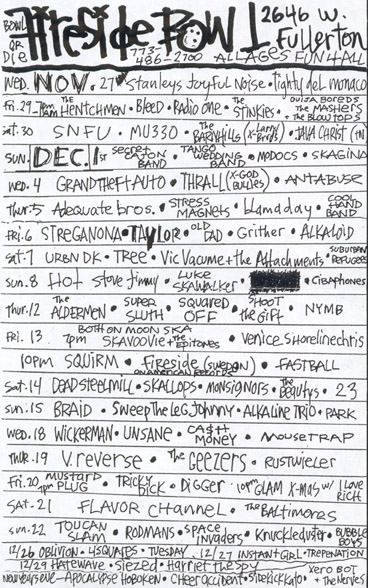 BOWL OR DIE Fireside Bowl 2646 W. Fullerton
773-486-2700 ALL AGES FUN 4 ALL
WED. NOV. 27 Stanleys Joyful Noise • Tighty del monaco
Fri. 29 THE HENTCHMEN • BLEED • RADIO ONE • THE STINKIES • OUIJA BOREDS • THE MASHERS + THE BLOW TOPS
SAT. 30 SNFU • MU330 • THE BARNHILLS • JAVA CHRIST
SUN. DEC. 1st secret CAJON BAND • TANGO WEDDING BAND • MODOCS • SKAGINA
WED. 4 GRAND THEFT AUTO • THRALL (X-GOD BULLIES) • ANTABUSE
Thur. 5 Adequate bros. • STRESS MAGNETS • blamaday • COOL HAND BAND
Fri. 6 STREGANONA • TAYLOR • OLD DAD • Grither • ALKALOID
SAT. 7 URBN DK • TREE • Vic Vacume + the Attachments • SUBURBAN REFUGEES
SUN. 8 HOT Stove Jimmy • LUKE SKAWALKER • CIBAPHONES
THUR. 12 THE ALDERMEN • SUPER SLUTH • SQUARED OFF • SHOOT THE GIFT • NYMB
Fri. 13 7pm BOTH ON MOON SKA SKAVOOVIE + THE EPITONES • VENICE SHORELINE CHRIS
10pm SQUIRM • Fireside (SWEDEN) ON AMERICAN RECORDS • FASTBALL
SAT. 14 DEAD STEELMILL • SKALLOPS • MONSIGNORS • THE BEAUTYS • 23
SUN. 15 BRAID • SWEEP THE LEG JOHNNY • ALKALINE TRIO • PARK
WED. 18 WICKERMAN • UNSANE • CA$H MONEY • MOUSETRAP
THUR. 19 V. REVERSE • THE GEEZERS • RUSTWIELER
Fri. 20 7pm MUSTARD PLUG • TRICKY DICK • DIGGER • 10pm GLAM X-MAS W/ I LOVE RICH
SAT. 21 FLAVOR CHANNEL • THE BALTIMORES
SUN. 22 TOUCAN SLAM • RODMANS • SPACE INVADERS • Knuckleduster • BUBBLE BOYS
12/26 OBLIVION • 4 SQUARES • TUESDAY. 12/27 INSTANT GIRL • TREPENATION
12/29 HATEWAVE • SIEZED • HARRIET THE SPY
NEW YEARS EVE - APOCALYPSE HOBOKEN • CHEER ACCIDENT • SLAPSTICK • XERO BOT • THE NERVES